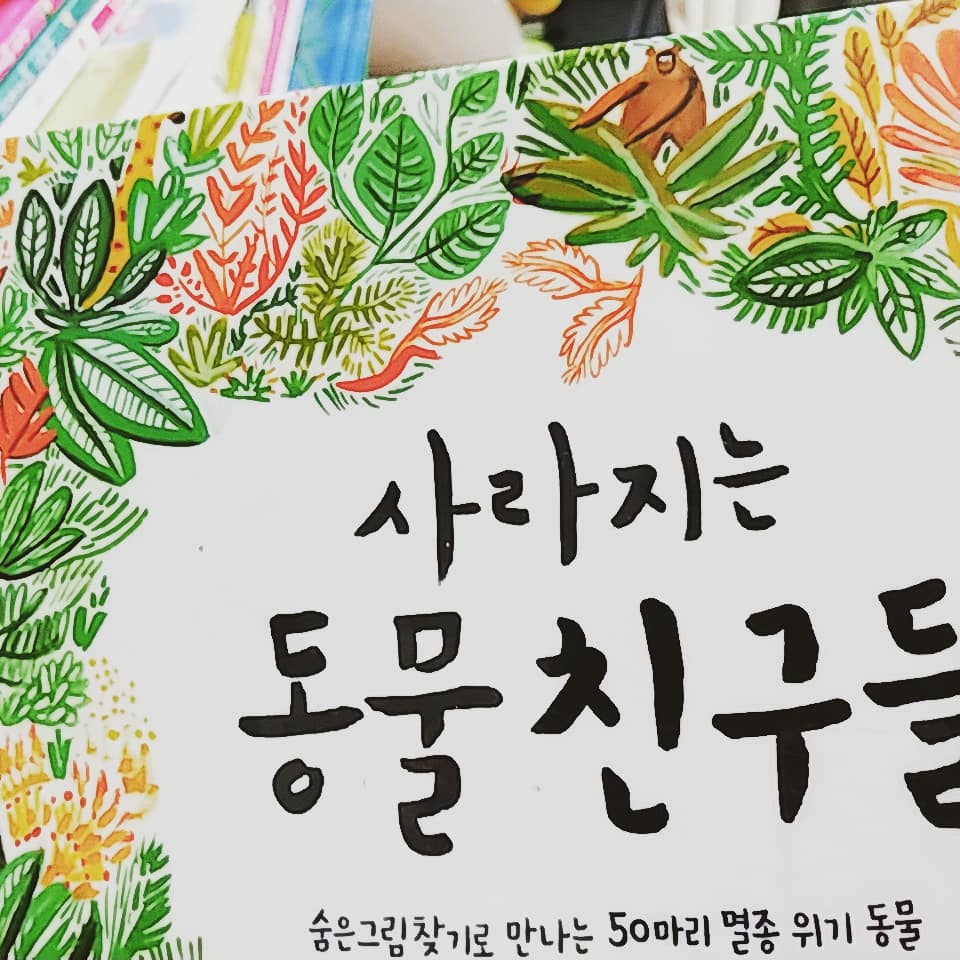 사라지는
동물 친구들
숨은그림찾기로 만나는 50마리 멸종 위기 동물